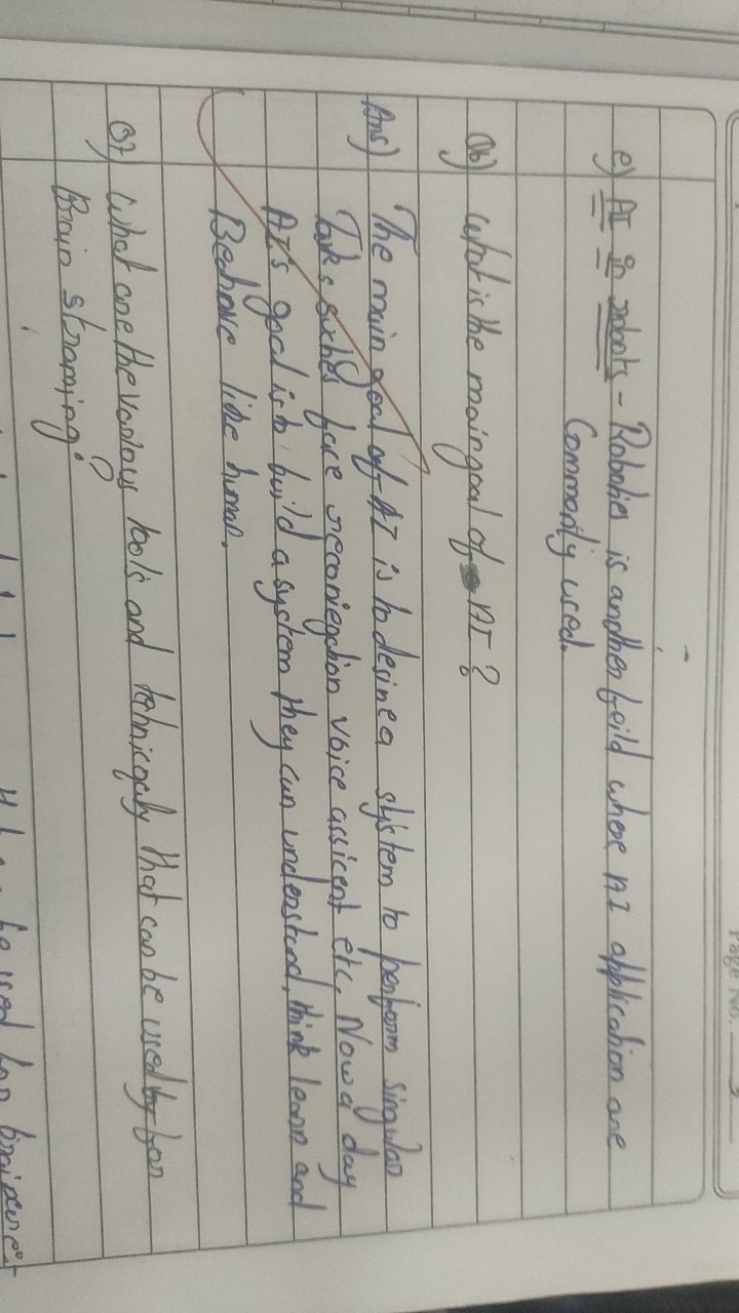 Page No. 3
e) AI in robots - Roboties is another feild where AI application are
Commonly used.
Q6) What is the main goal of AI?
Ans) The main goal of AI is to desine a system to perform singular
Task suches face recorniegation voice assicent etc. Now a day
AI's goal is to build a system they can understand, think learn and
Beahave like human.
Q7) What are the various tools and tehnicqaly that can be used by for
Brain stroming?
be used for brain